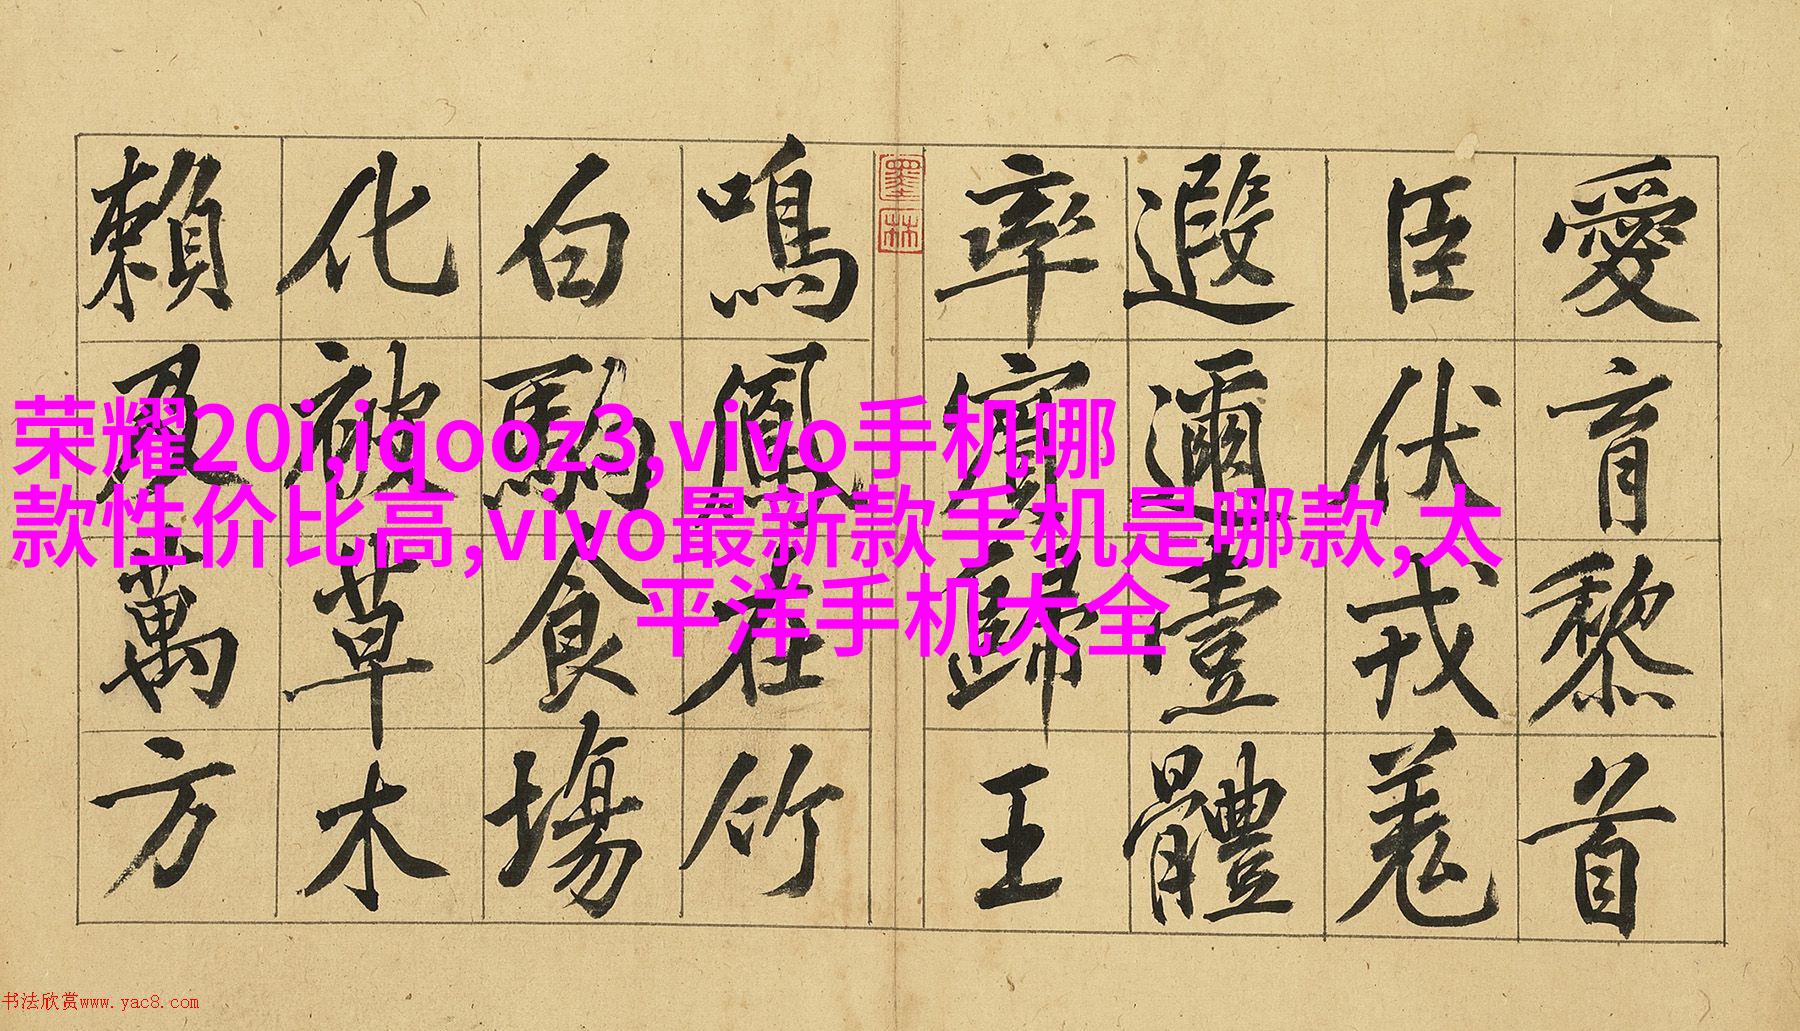 荣耀20i,iqooz3,vivo手机哪
款性价比高,vivo最新款手机是哪款,太
平洋手机大全
愛育黎首
臣伏戎羌
遐邇壹體
率賓歸王
墨林
鳴鳳在竹
白駒食場
化被草木
賴及萬方
书法欣赏www.yac8.com